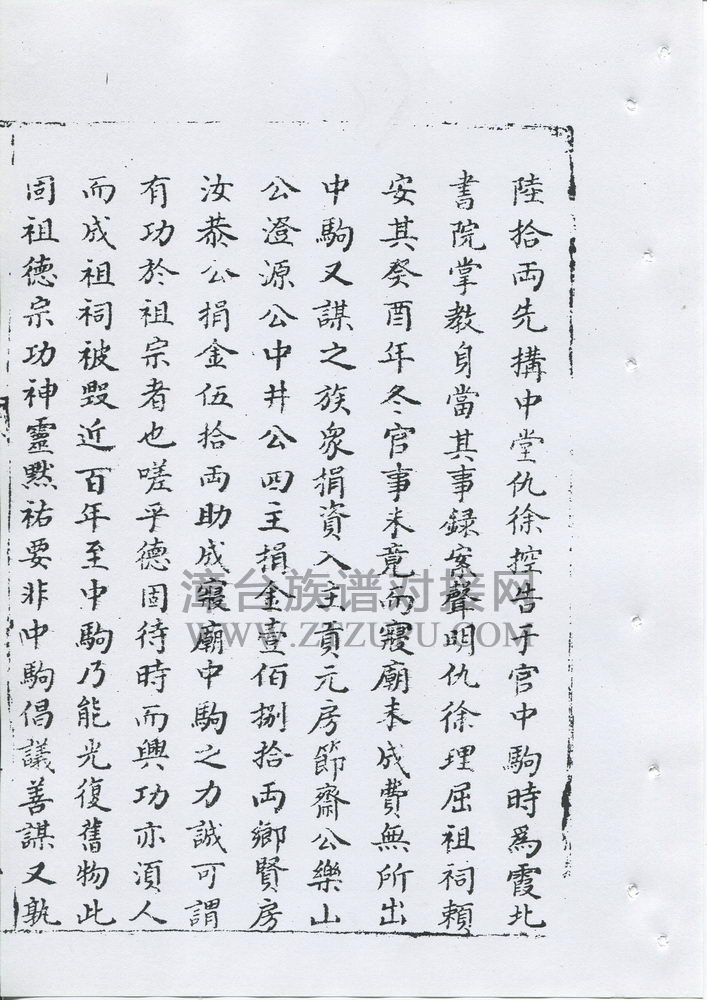 陸拾両先搆中堂仇徐控告于官中駒時爲霞北
書院掌教身當其事録案聲明仇徐理屈祖祠頼
安其癸酉年冬官事未竟而寢廟未成費無所出
中駒又謀之族衆捐資入主貢元房節齋公樂山
公澄源公中井公四主捐金壹佰捌拾両鄉賢房
汝恭公捐金伍拾両助成寢廟中駒之力誠可謂
有功於祖宗者也嗟乎德固待時而興功亦湏人
而成祖祠被毀近百年至中駒乃能光復舊物此
固祖德宗功神靈黙祐要非中駒倡議善謀又孰
漳台族谱对接网
WWW.ZTZUPU.COM